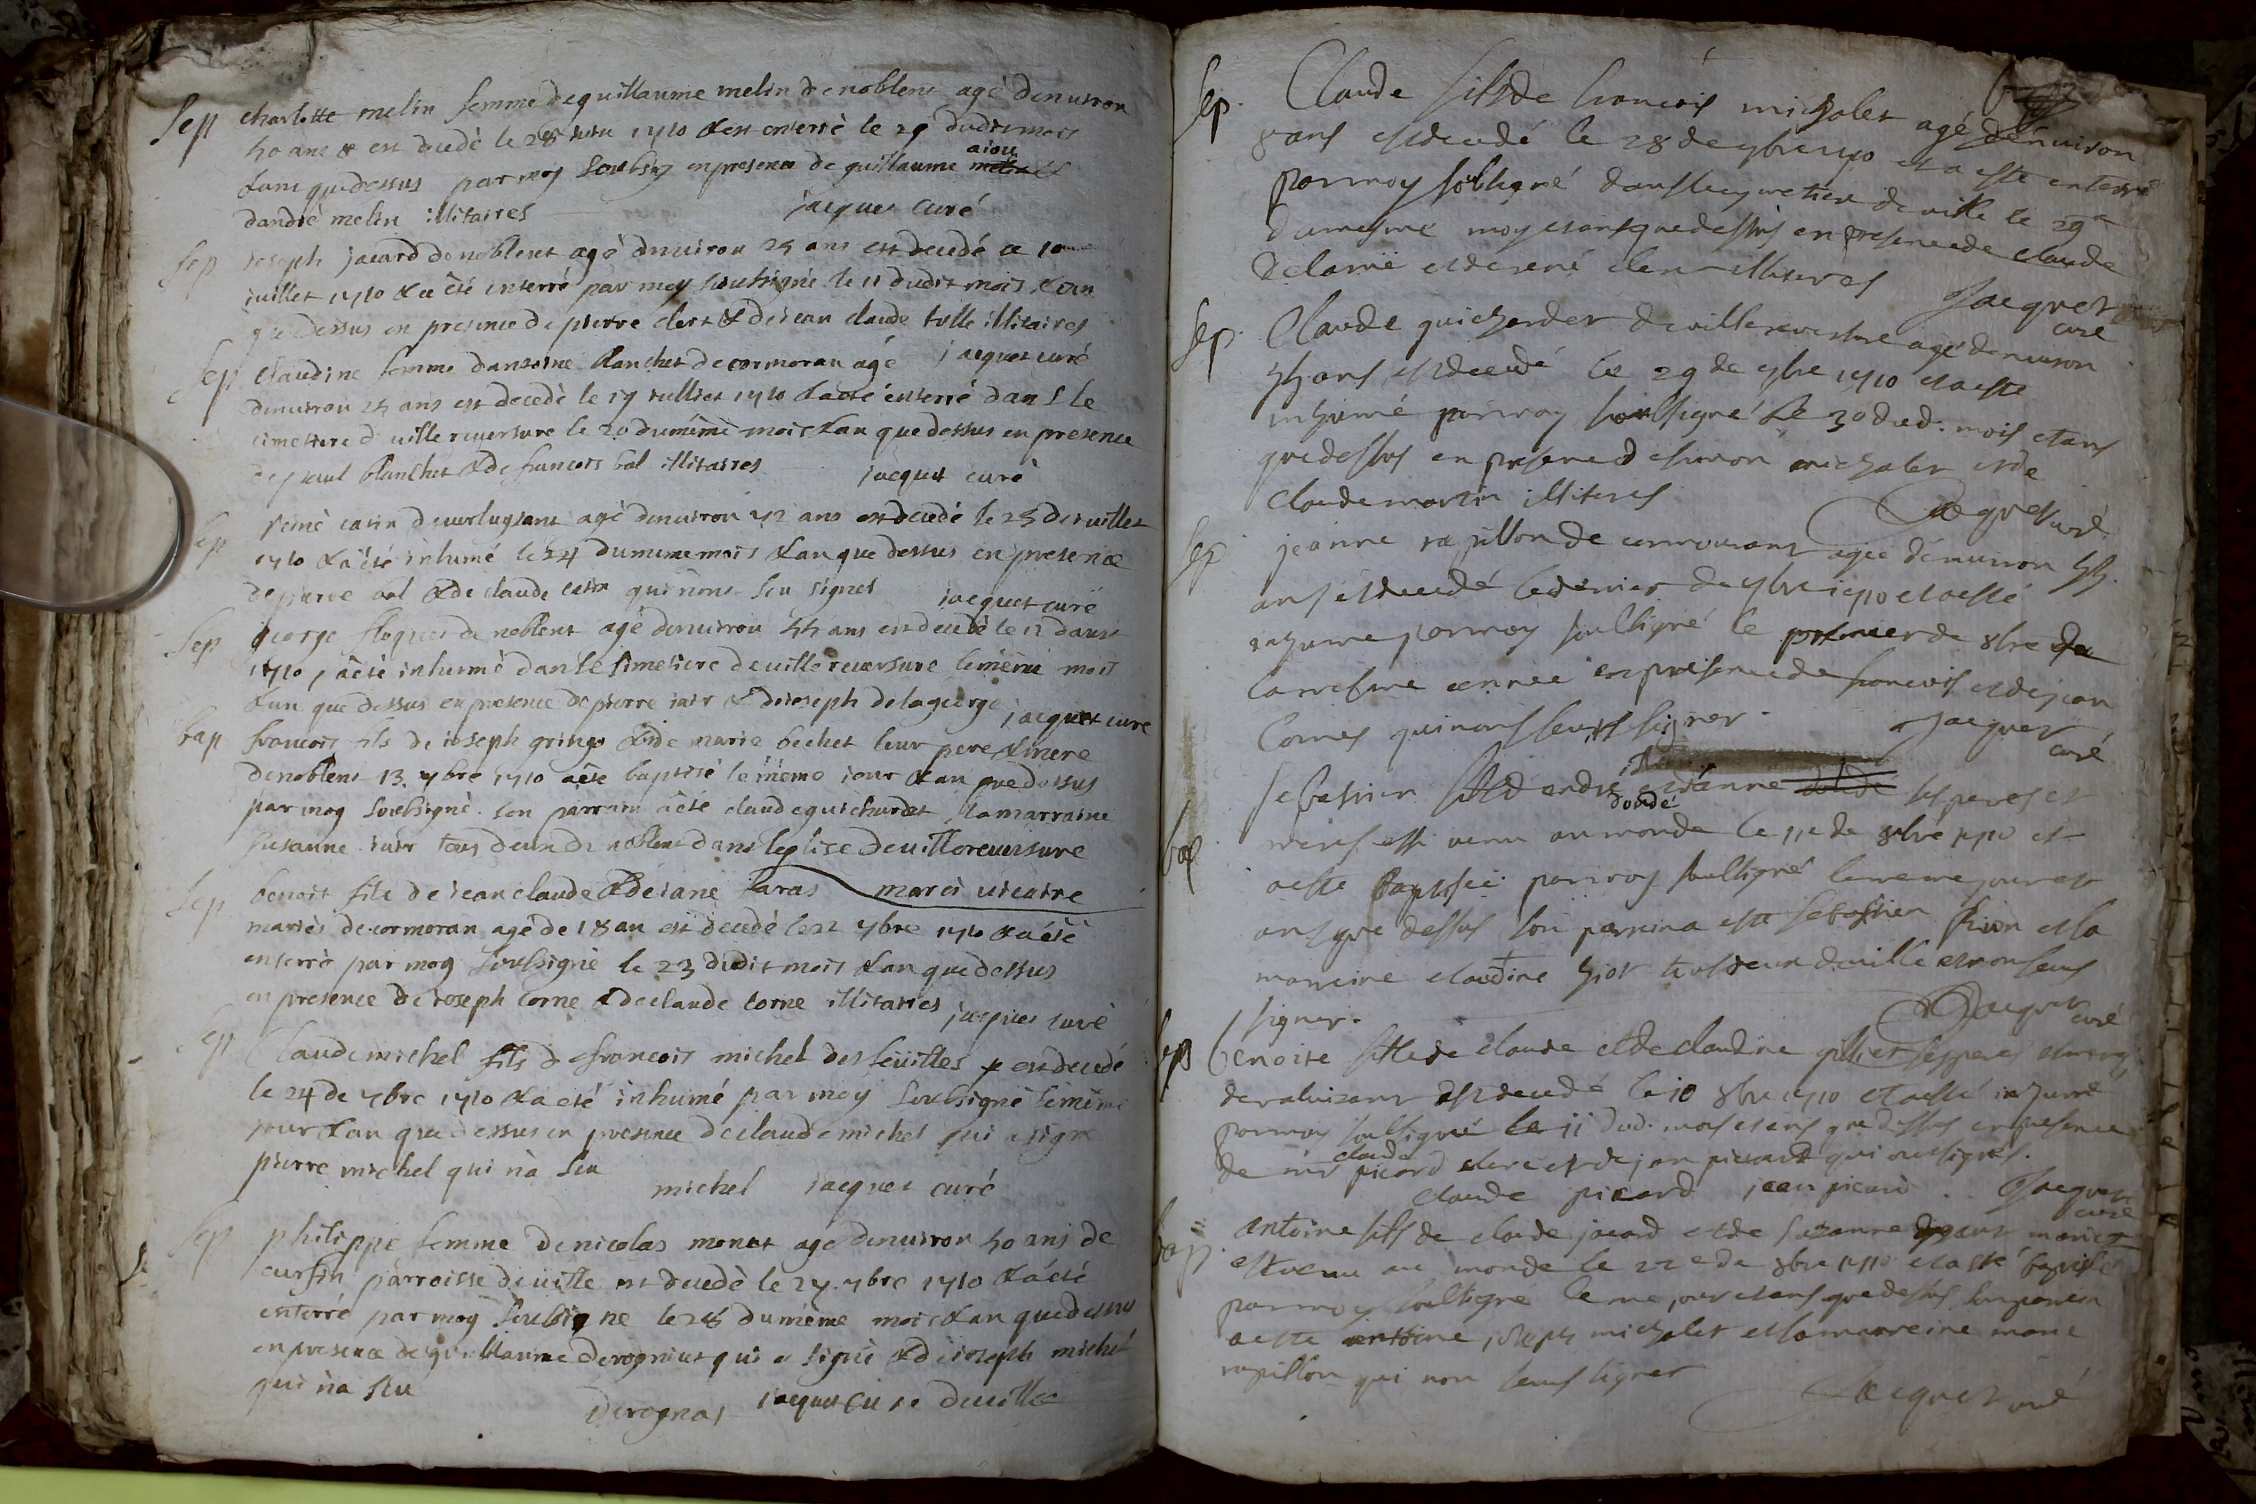 Sep charlotte melin femme de guillaume melin de noblens agé denuiron
50 ans & est decedé le 28 juin 1710 & est enterré le 29 dudit mois
& an que dessus par moy soubsigné en presence de guillaume aiou &
dandré melin illitaires jacquet curé
Sep joseph jacard de noblent agé denuiron 25 ans est decedé ce 10
juillet 1710 & a été enterré par moy soubsigné le 11 dudit mois & an
que dessus en presence de pierre clert & de jean claude tulle illitaires
jacquet curé
Sep claudine femme dantoine blanchet de cormoran agé
denuiron 25 ans est decedé le 19 iulliet 1710 & a eté enterré dans le
cimetiere d uille reuersure le 20 du méme mois & an que dessus en presence
de paul blanchet & de francois bal illitaires jacquet curé
Sep René catin de agé denuiron 42 ans est decedé le 23 de iuillet
1710 & a été inhumé le 24 du méme mois & an que dessus en presence
de pierre bal & de claude catin qui n'ont seu signer jacquet curé
Sep george floquet de noblent agé denuiron 55 ans est decedé le 12 daust
1710, a été inhumé dans le simetiere de uille reuersure le méme mois
& an que dessus en presence de pierre iair & de ioseph delageorge jacquet curé
bap francois fils de ioseph gringo & de marie bechet leur pere & mere
de noblent 13. 7bre 1710 a été baptisé le méme iour & an que dessus
par moy soubsigné. son parrain a été claude guichardet, la marraine
susanne iair tous deun de noblent dans leglise de uille reuersure
maroi uicaire
Sep benoit fils de jean claude & de iane Paras
mariés de cormoran agé de 18 an est decedé le 22 7bre 1710 & a été
enterré par moy soubsigné le 23 dudit mois & an que dessus
en presence de ioseph corne & de claude corne illitaires jacquet curé
Sep Claude michel fils de francois michel des feuilles est decedé
le 24 de 7bre 1710 & a eté inhumé par moy soubsigné le méme
jour & an que dessus en presence de claude michel qui a signé
pierre michel qui n'a seu
michel jacquet curé
Sep philippe femme de nicolas monet agé denuiron 50 ans de
cursin parroisse de uille est decedé le 27. 7bre 1710 & a été
enterré par moy soubsigné le 28 du méme mois & an que dessus
en presence de guillaume derognat qui a signé & de ioseph michel
qui n'a seu
Derognat jacquet curé de uille
Sep. Claude fils de francois michalet agé denuiron
8 ans est decedé le 28 de 7bre 1710 et a esté enterré
par moy soubsigné dans le cymetiere de ville le 29e
du mesme moy et ans que dessus en presence de claude
delarue et de rené clerc illiteres
Jacquet curé
Sep. Claude guichardet de villereversure agé denuiron
55 ans est decedé le 29 de 7bre 1710 et a esté
inhumé par moy soubsigné le 30 dud. mois et ans
que dessus en presence de simon michalet et de
claude martin illiteres
Jacquet curé
Sep jeanne rapillon de cormorans agée denuiron 55.
ans est decedé le dernier de 7bre 1710 et a esté
inhumé par moy soubsigné le premier de 8bre de
la mesme année en presence de francois et de jean
Cornes qui nont seuss signer.
Jacquet curé
bap Sebastien fils d'andré et d'anne doudé ses peres et
meres est venu au monde le 11e de 8bre 1710 et
a esté baptisé par moy soubsigné le meme jour et
ans que dessus son parrin a esté sebastien et la
marreine claudine tous deux de ville et non seus
signer.
Jacquet curé
Sep benoite fille de claude et de claudine gillet ses peres et mere
de est decedé le 10 8bre 1710 et a esté inhumé
par moy soubsigné le 11 dud. mois et ans que dessus en presence
de mr claude picard clerc et de jean picard qui ont signés.
claude picard jean picard Jacquet curé
bap. antoine fils de claude jacard et de suzanne mariez
est venu au monde le 22e de 8bre 1710 et a esté baptisé
par moy soubsigné le me jour et ans que dessus son parrin
a esté antoine joseph michalet et la marreine marie
rapillon qui non seus signer
Jacquet curé